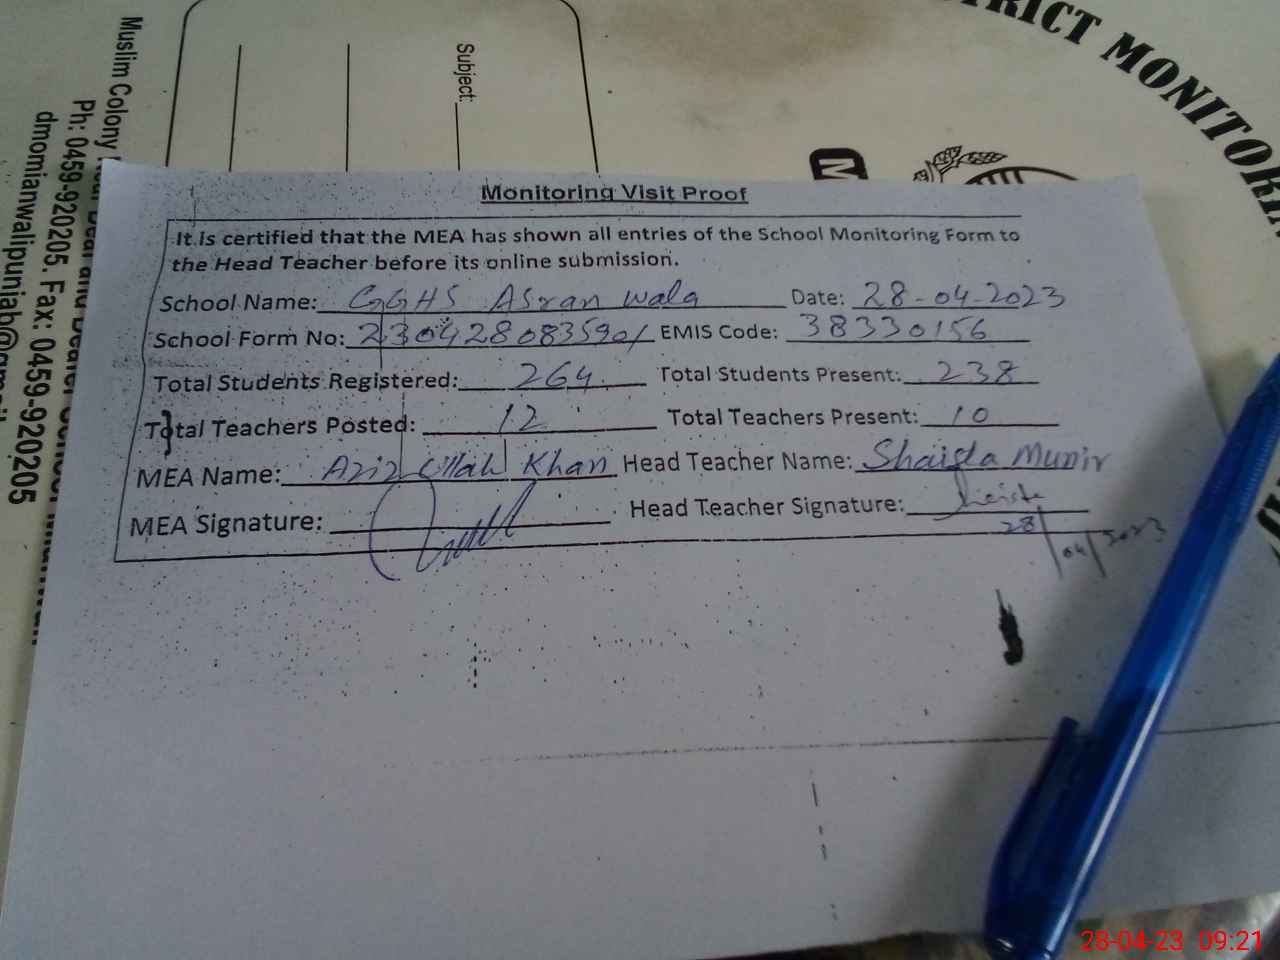 Muslim Colony
Ph: 0459-920205. Fax: 0459-920205
Subject:
DISTRICT MONITORING
Monitoring Visit Proof
It is certified that the MEA has shown all entries of the School Monitoring Form to
the Head Teacher before its online submission.
School Name: GGHS Asran wala Date: 28-04-2023
School Form No: EMIS Code: 38330156
Total Students Registered: 264 Total Students Present: 238
Total Teachers Posted: 12 Total Teachers Present: 10
MEA Name: Aziz Ullah Khan Head Teacher Name: Shaista Munir
MEA Signature: Head Teacher Signature:
28/04/2023
28-04-23 09:21